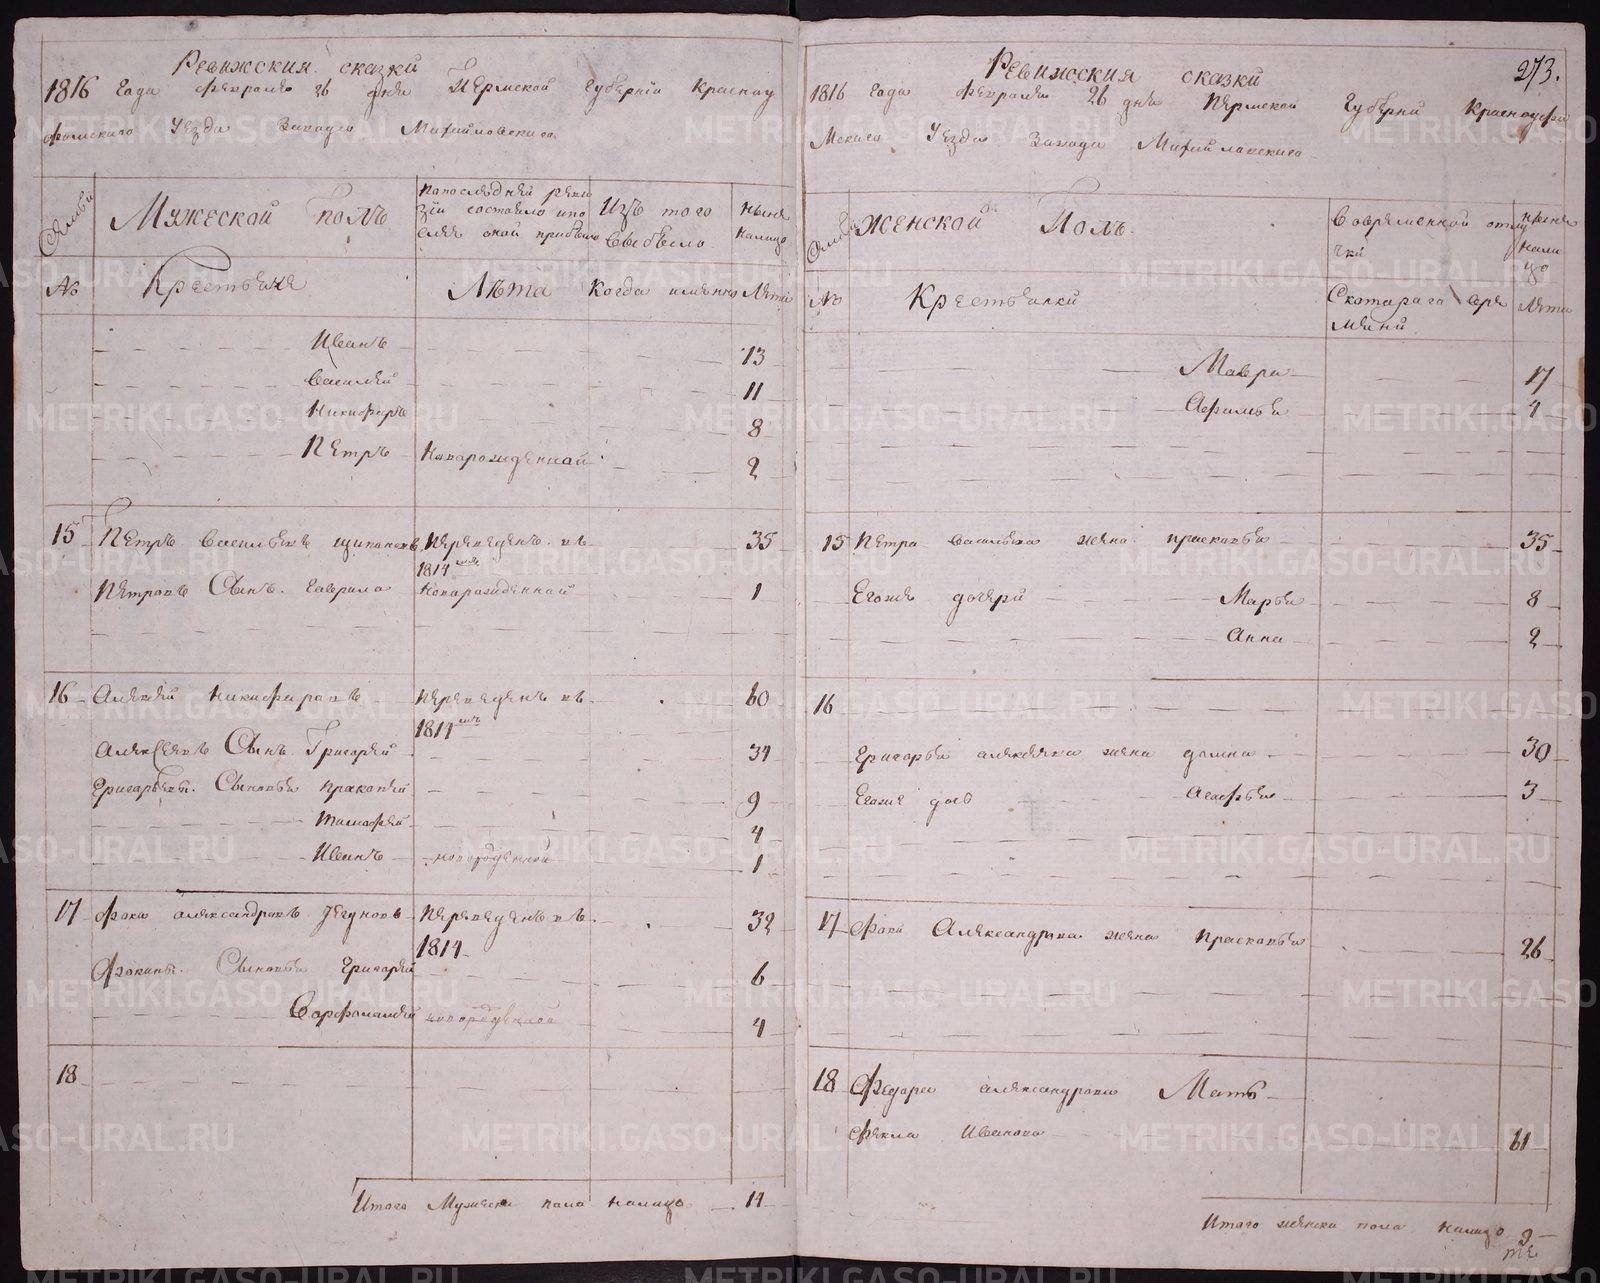 Ревижския сказки
1816 Года Февраля 26 дня Пермской Губернiи Красноу
фимскаго Уезда Завода Михайловскаго
Семьи
Мужеской полъ
Напоследней реви
зiи состояло ипо
сле оной прибыло
Изъ того
выбыло
ныне
налицо
№
Крестьяне
Лѣта
Когда именно
Лета
Иванъ 13
Василей 11
Никифоръ 8
Петръ Наварожденной 2
15 Петръ Васильевъ Щипановъ Переведенъ въ 35
1814 мъ
Петровъ Сынъ Гаврило Новарожденной 1
16 Алексей Никифоровъ Переведенъ въ 60
1814 мъ
Алексеевъ Сынъ Григорей 34
Григорьевы Сыновья Пракопей 9
Тимофей 4
Иванъ новорожденной 1
17 Фока Александровъ Переведенъ въ 32
1814
Фокины Сыновья Григорей 6
Варфоломей новорожденной 4
18
Итого Мужеска пола налицо 14
273.
Ревижския сказки
1816 Года Февраля 26 дня Пермской Губернiи Красноуфи
мскаго Уезда Завода Михайловскаго
Семьи
Женской Полъ
Вовременной отлу
чки
ныне
нали
цо
№
Крестьянки
Скотораго вре
мени
Лета
Мавра 17
Афимья 4
15 Петра Васильева жена Прасковья 35
Егоже дочери Марья 8
Анна 2
16
Григорья Алексеева жена Домна 30
Егоже дочь Агафья 3
17 Фоки Александрова жена Прасковья 26
18 Федора Александрова Мать
Фекла Иванова 61
Итого женска пола налицо 9
METRIKI.GASO-URAL.RU